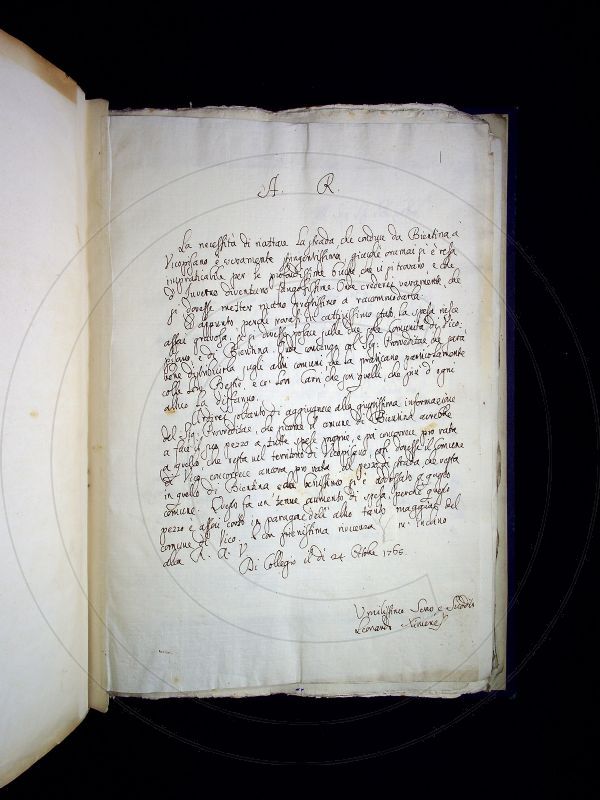 A. R.
La necessità di riattare la strada che conduce da Bientina a
Vicopisano è sicuramente stringentissima, giacchè oramai si è resa
impraticabile per le profondissime buche che vi si trovano, e che
d'Inverno diventano
si dovesse metter mano prestissimo a raccomodarla.
E appunto perchè trovasi in cattivissimo stato, la spesa riesce
assai gravosa, e se dovesse posare sulle due sole Comunità di Vico
pisano, e di Bientina. Onde convengo col Sig. Provveditore che sarà
bene distribuirla sugli altri comuni che la praticano particolarmente
colle loro Bestie, e co' loro Carri che son quelli, che più d'ogni
altro la disfanno.
Avrei soltanto di aggiugnere alla giustissima informazione
del Sig. Provveditore, che siccome il comune di Bientina avrebbe
a fare il suo pezzo a tutte spese proprie, e poi concorrere pro rata
a quello che resta nel territorio di Vicopisano, così dovesse il Comune
di Vico concorrere ancora pro rata al pezzo di strada che resta
in quello di Bientina
comune. Questo fa un tenue aumento di spesa, perchè questo
pezzo è assai corto in paragone dell' altro tanto maggiore del
comune di Vico. E con pienissima m' inchino
alla R. A. V.
Di Collegio il dì 24 Ottobre 1765.
Umilissimo Servo e Suddito
Leonardo Ximenes